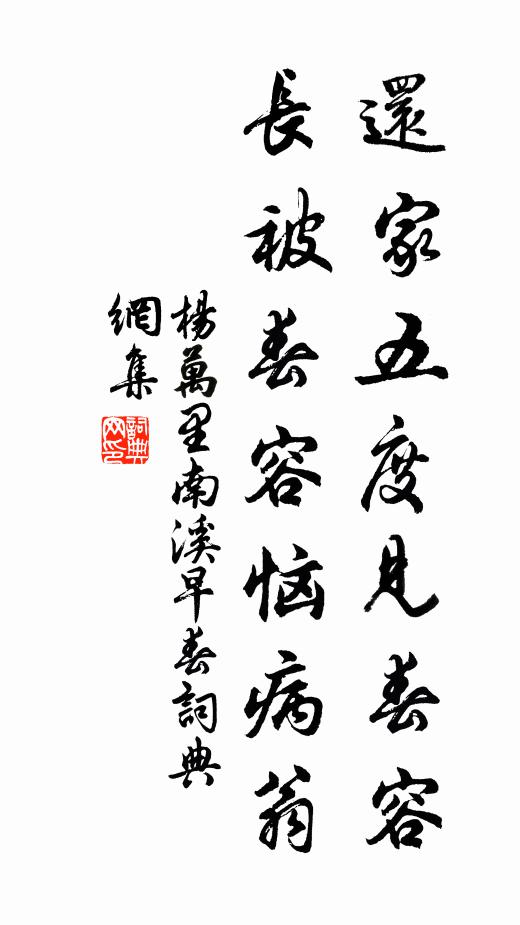 還家五度見春容
長被春容惱病翁
楊萬里南溪早春詞典
網集
詞典
网印